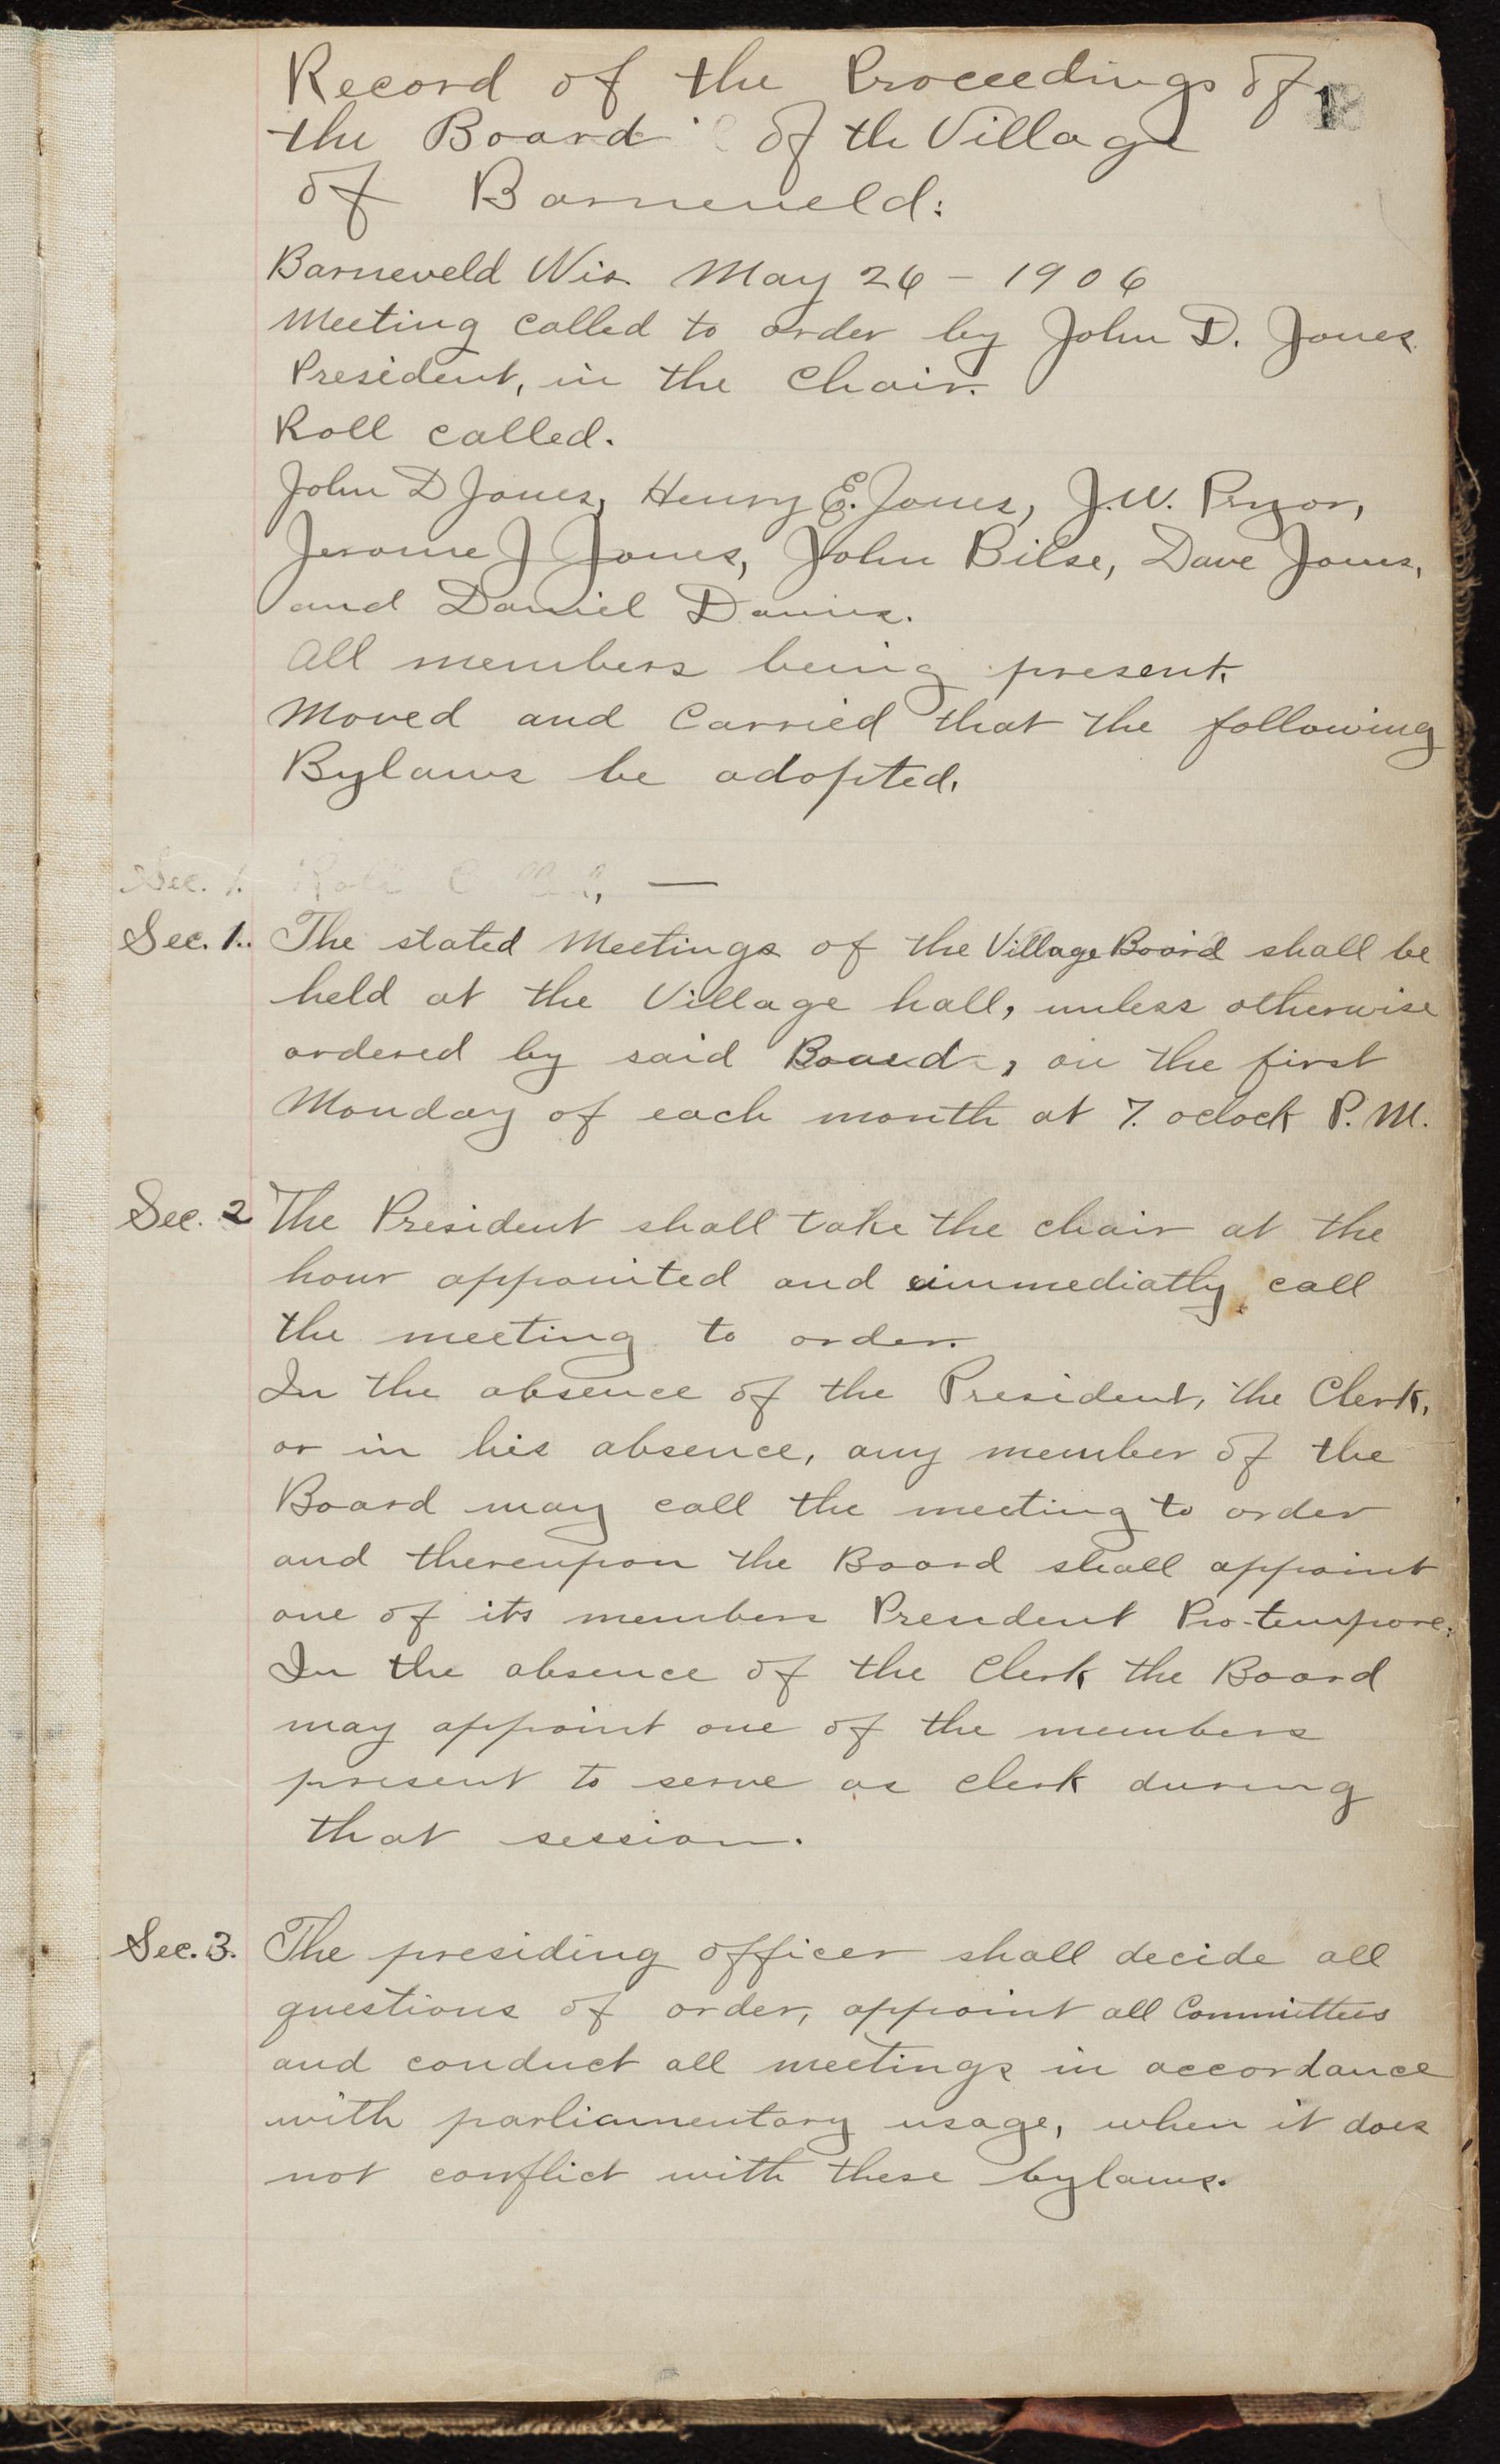 Record of the Proceedings of
1
the Board of the Village
of Barneveld:
Barneveld Wis. May 26 - 1906
Meeting called to order by John D. Jones
President, in the Chair.
Roll called.
John D Jones, Henry E. Jones, J.W. Pryor,
Jerome J Jones, John Bilse, Dave Jones,
and Daniel Davies.
All members being present.
Moved and Carried that the following
Bylaws be adopted.
Sec. 1. Roll Called, —
Sec. 1.. The stated Meetings of the Village Board shall be
held at the Village hall, unless otherwise
ordered by said Board, on the first
Monday of each month at 7. oclock P.M.
Sec. 2 The President shall take the chair at the
hour appointed and immediatly call
the meeting to order.
In the absence of the President, the Clerk,
or in his absence, any member of the
Board may call the meeting to order
and thereupon the Board shall appoint
one of its members President Pro-tempore.
In the absence of the Clerk the Board
may appoint one of the members
present to serve as clerk during
that session.
Sec. 3. The presiding officer shall decide all
questions of order, appoint all Committees
and conduct all meetings in accordance
with parliamentary usage, when it does
not conflict with these bylaws.